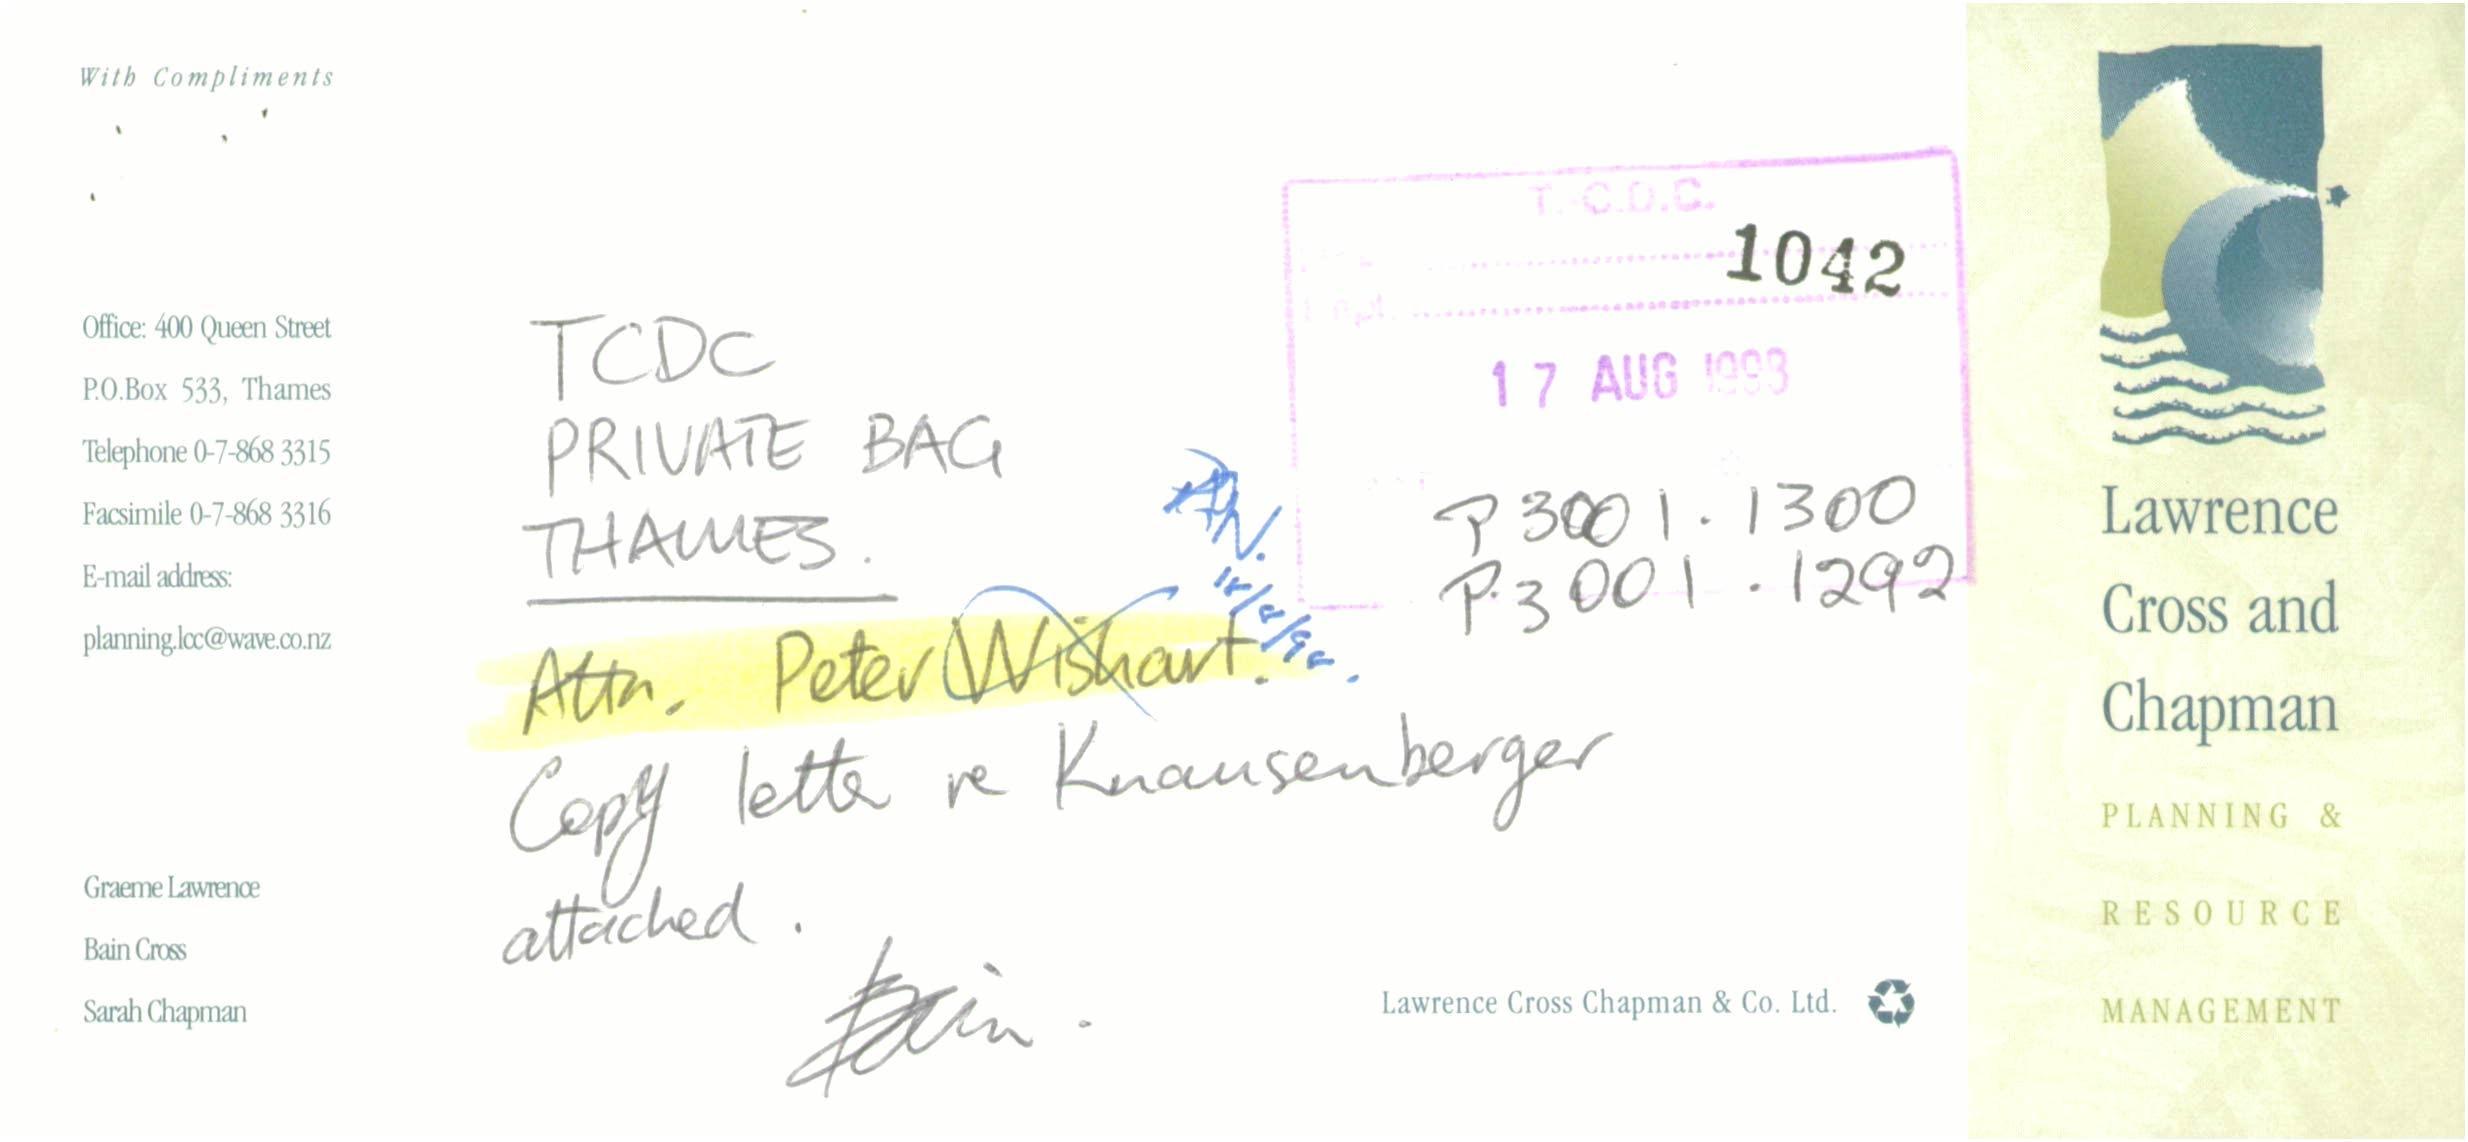 With Compliments
Office: 400 Queen Street
P.O.Box 533, Thames
Telephone 0-7-868 3315
Facsimile 0-7-868 3316
E-mail address:
planning.lcc@wave.co.nz
Graeme Lawrence
Bain Cross
Sarah Chapman
TCDC
PRIVATE BAG
THAMES.
Attn. Peter Wishart.
Copy letter re Knausenberger
attached.
Bain.
T.C.D.C.
1042
17 AUG 1998
P3001.1300
P.3001.1292
Lawrence Cross Chapman & Co. Ltd.
Lawrence
Cross and
Chapman
PLANNING &
RESOURCE
MANAGEMENT